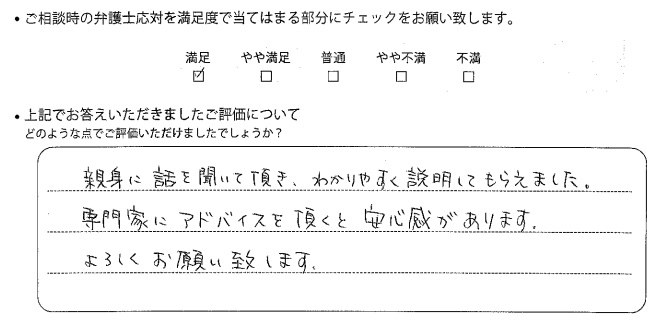 ・ご相談時の弁護士応対を満足度で当てはまる部分にチェックをお願い致します。
満足 やや満足 普通 やや不満 不満
☑ □ □ □ □
・上記でお答えいただきましたご評価について
どのような点でご評価いただけましたでしょうか？
親身に話を聞いて頂き、わかりやすく説明してもらえました。
専門家にアドバイスを頂くと安心感があります。
よろしくお願い致します。